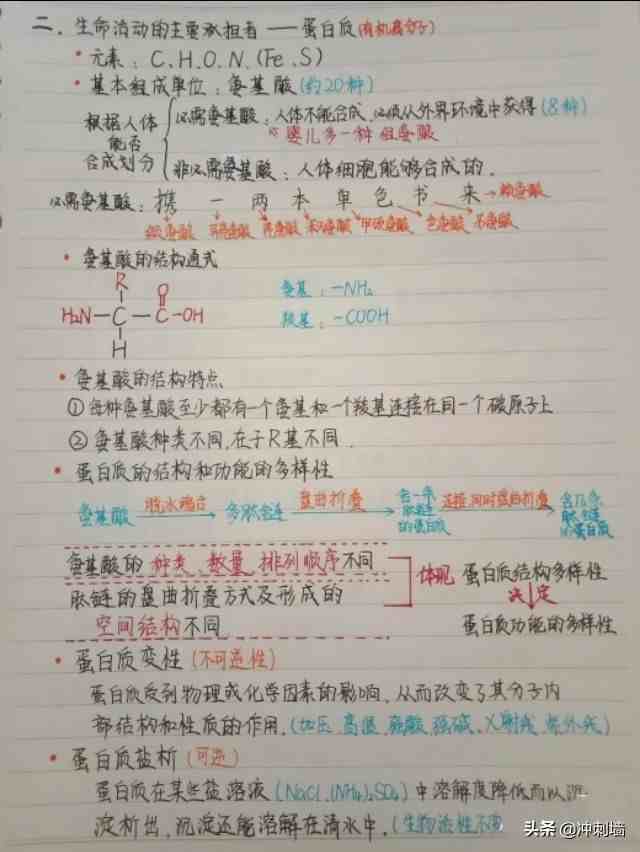 二、生命活动的主要承担者——蛋白质(有机高分子)
• 元素：C、H、O、N、(Fe、S)
• 基本组成单位：氨基酸(约20种)
根据人体能否合成划分
必需氨基酸：人体不能合成,必须从外界环境中获得(8种)
婴儿多一种 组氨酸
非必需氨基酸：人体细胞能够合成的。
必需氨基酸：携 一 两 本 单 色 书 来→赖氨酸
缬氨酸 异亮氨酸 亮氨酸 苯丙氨酸 甲硫氨酸 色氨酸 苏氨酸
• 氨基酸的结构通式
R O
H₂N—C—C-OH
H
氨基：-NH₂
羧基：-COOH
• 氨基酸的结构特点
①每种氨基酸至少都有一个氨基和一个羧基连接在同一个碳原子上
②氨基酸种类不同,在于R基不同.
• 蛋白质的结构和功能的多样性
氨基酸 脱水缩合→ 多肽链 盘曲折叠→ 含一条肽链的蛋白质 连接,同时盘曲折叠→ 含几条肽链的蛋白质
氨基酸的 种类、数量、排列顺序不同
肽链的盘曲折叠方式及形成的
空间结构不同
体现 蛋白质结构多样性
决定
蛋白质功能的多样性
• 蛋白质变性(不可逆性)
蛋白质受到物理或化学因素的影响,从而改变了其分子内
部结构和性质的作用.(加压、高温、强酸、强碱、X射线、紫外线)
• 蛋白质盐析(可逆)
蛋白质在某些盐溶液(NaCl、(NH₄)₂SO₄)中溶解度降低而以沉
淀析出,沉淀还能溶解在清水中.(生物活性不变
头条 @冲刺墙